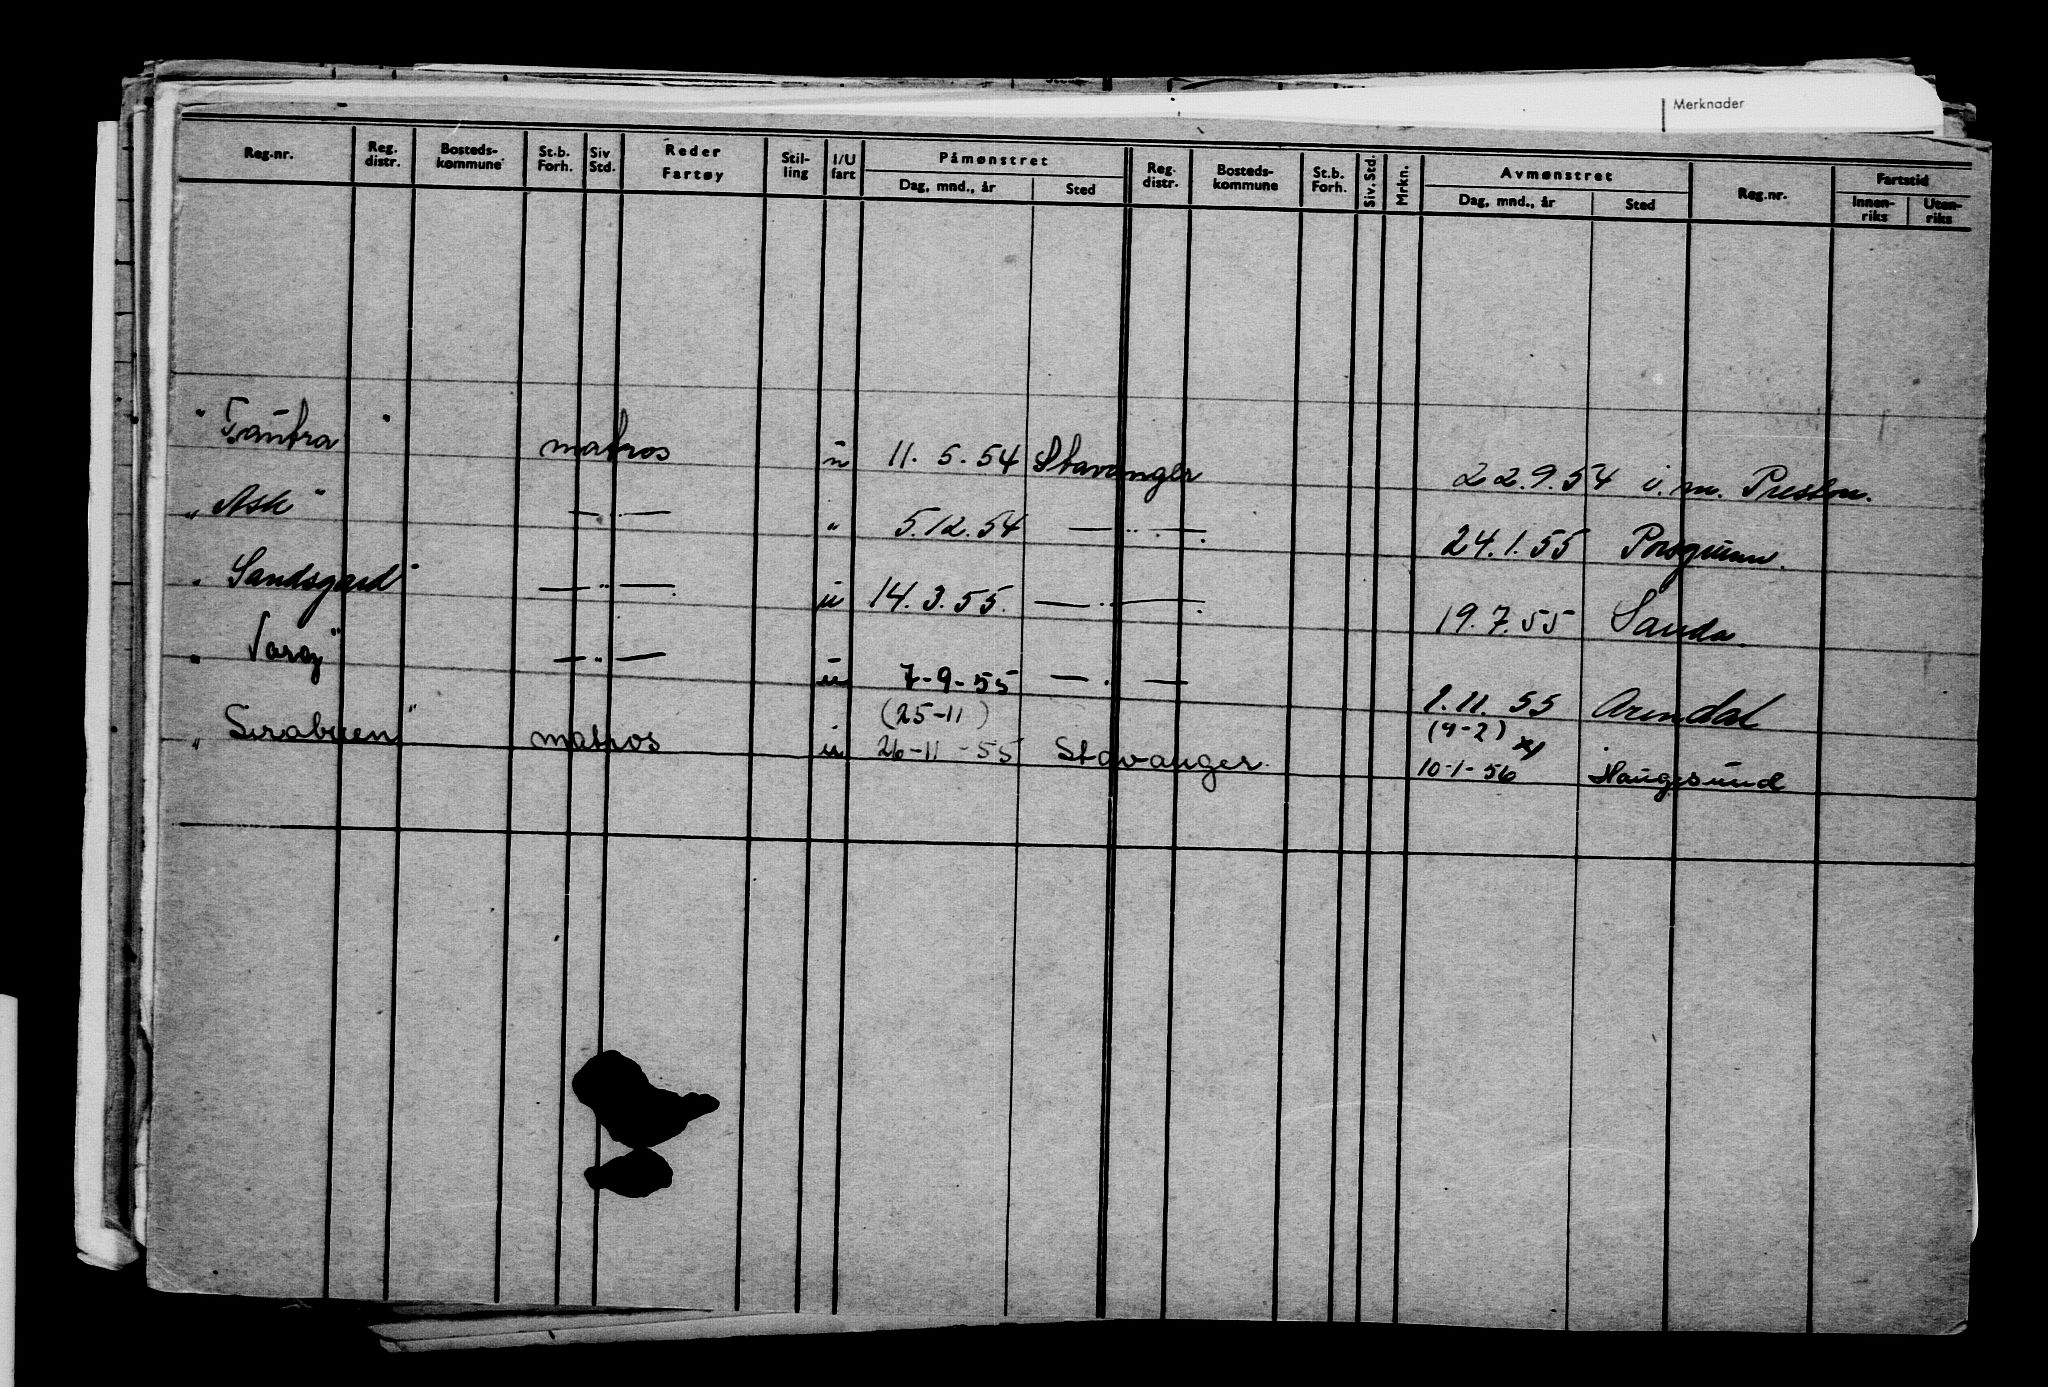 Merknader
Reg.nr. Reg. distr. Bosteds-kommune St.b. Forh. Siv Std. Reder Fartøy Stil-ling I/U fart Påmønstret Dag, mnd., år Sted Reg. distr. Bosteds-kommune St.b. Forh. Siv. Std. Mrkn. Avmønstret Dag, mnd., år Sted Reg.nr. Fartstid Innen-riks Uten-riks
" Tautra " matros u 11. 5. 54 Stavanger 22.9.54 i.m. Preston.
" Ask " — „ — " 5.12.54 — „ — 24.1.55 Porsgrunn.
" Sandsgard " — „ — u 14.3.55. — „ — 19.7.55 Sauda
" Varøy " — „ — u 7-9-55 — „ — 1.11.55 Arendal
(25-11) (4-2)
" Sirabuen " matros u 26-11-55 Stavanger. 10-1-56 x) Haugesund